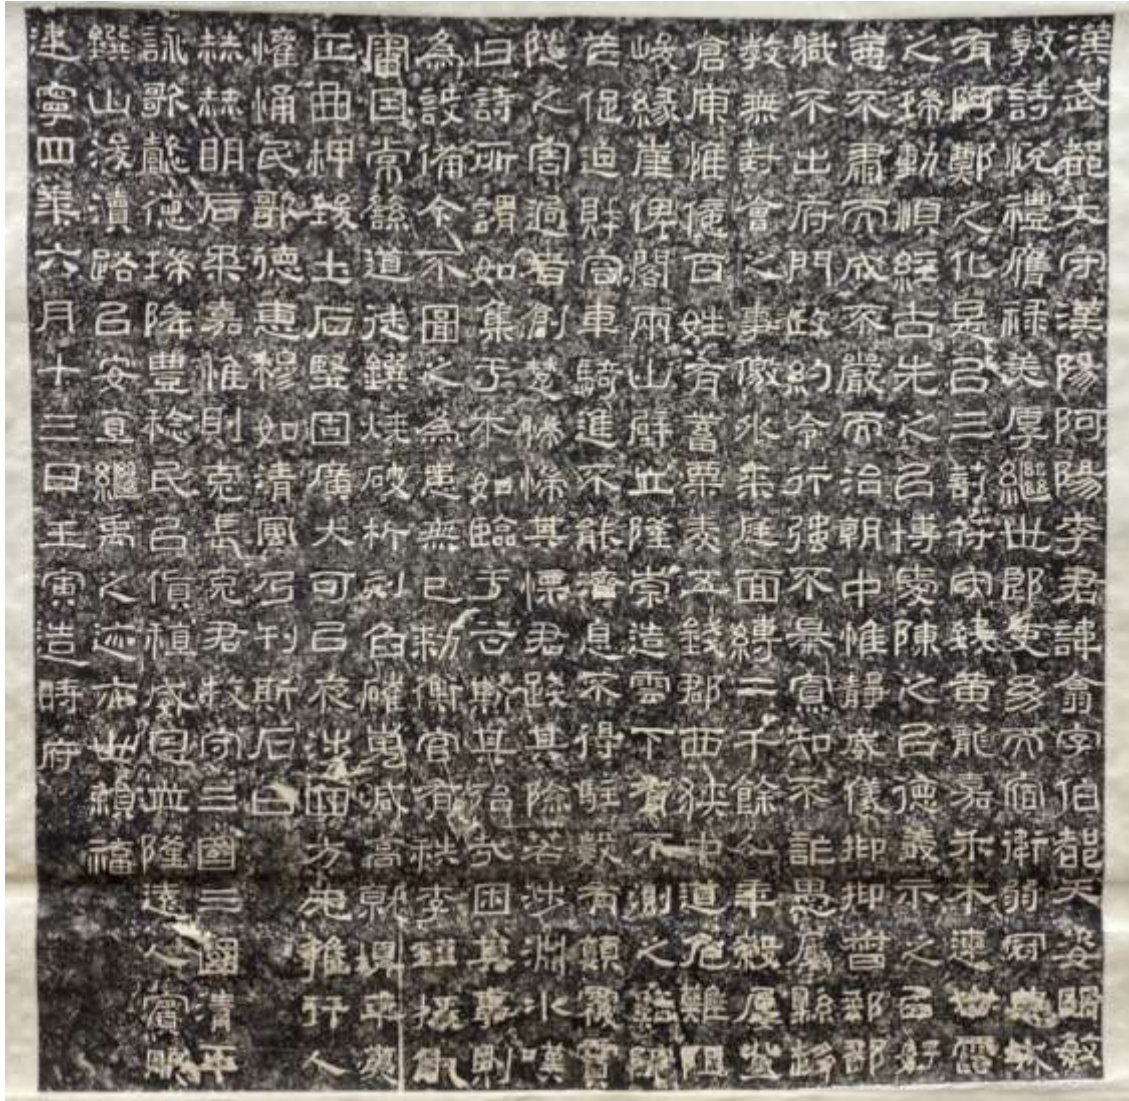 漢武都太守漢陽阿陽李君諱翕字伯都天姿明敏
敦詩悅禮膺祿美厚繼世郎吏幼而宿衛弱冠典城
有阿鄭之化是以三剖符守致黃龍嘉禾木連甘露
之瑞動順經古先之以博愛陳之以德義示之以好
惡不肅而成不嚴而治朝中惟靜威儀抑抑督郵部
職不出府門政約令行強不暴寡知不詐愚屬縣趨
教無對會之事徼外來庭面縛二千餘人年穀屢登
倉庾惟億百姓有蓄粟麥五錢郡西狹中道危難阻
峻緣崖俾閣兩山壁立隆崇造雲下有不測之谿阨
芒促迫財容車騎進不能濟息不得駐數有顛覆霣
隧之害過者創楚惴惴其慄君踐其險若涉淵冰嘆
曰詩所謂如集于木如臨于谷斯其殆哉困其事則
為設備今不圖之為患無已敕衡官有秩李瑾掾仇
審因常繇道徒鐉燒破析刻臽磪嵬減高就埤平夷
正曲柙致土石堅固廣大可以夜涉四方无雍行人
懽悀民歌德惠穆如清風乃刊斯石曰
赫赫明后柔嘉惟則克長克君牧守三國三國清平
詠歌懿德瑞降豐稔民以貨稙威恩並隆遠人賓服
鐉山浚瀆路以安直繼禹之迹亦世賴福
建寧四年六月十三日壬寅造時府